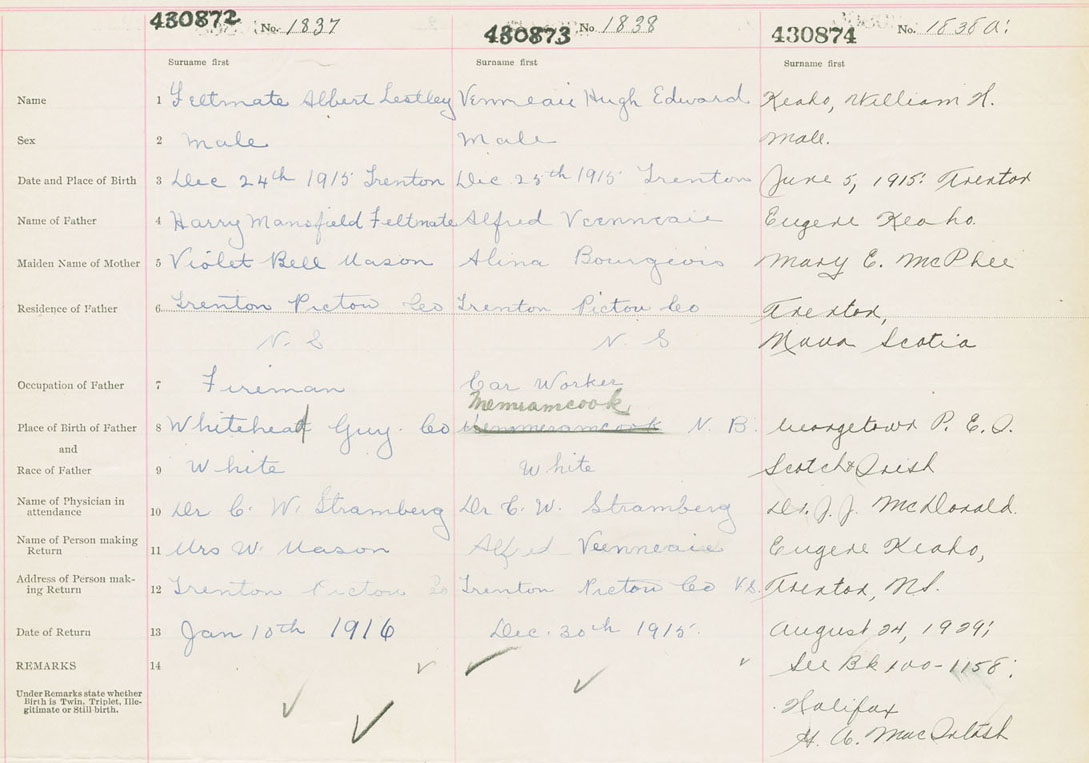 430872 No. 1837 430873 No 1838 430874 No. 1838a.
Surname first Surname first Surname first
Name 1 Feltmate Albert Lestley Venneaii Hugh Edward Keoho, William H.
Sex 2 Male Male Male.
Date and Place of Birth 3 Dec 24th 1915 Trenton Dec 25th 1915 Trenton June 5, 1915. Trenton
Name of Father 4 Harry Mansfield Feltmate Alfred Veenneaie Eugene Keoho.
Maiden Name of Mother 5 Violet Bell Mason Alina Bourgeois Mary E. McPhee
Residence of Father 6 Trenton Pictou Co Trenton Pictou Co Trenton,
N. S N. S Nova Scotia
Occupation of Father 7 Fireman Car Worker
Memramcook
Place of Birth of Father 8 Whitehead Guy. Co N. B. Georgetown P. E. I.
and
Race of Father 9 White White Scotch & Irish
Name of Physician in
attendance 10 Dr C. W. Stramberg Dr C. W. Stramberg Dr. J. J. McDonald.
Name of Person making
Return 11 Mrs W. Mason Alfred Veenneaie Eugene Keoho,
Address of Person mak-
ing Return 12 Trenton Pictou Co Trenton Pictou Co N.S. Trenton, N.S.
Date of Return 13 Jan 10th 1916 Dec. 30th 1915. August 24, 1929.
REMARKS 14 See Bk 100-1158.
Under Remarks state whether
Birth is Twin, Triplet, Ille-
gitimate or Still-birth.
Halifax
H. A. MacIntosh